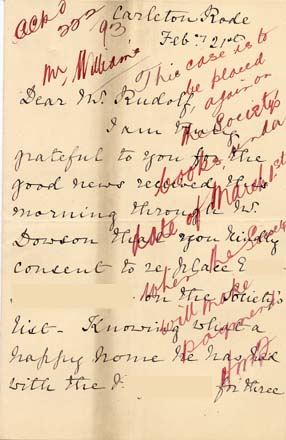 Ackd
22 2
93
Mr Williams
Carleton Rode
Feby 21st
This case is to
be placed
again on
the Society's
books under
date of March 1st
when the Society
will make
payment
Dear Mr. Rudolf,
I am
grateful to you for the
good news received this
morning through Mr.
Dowson that you kindly
consent to re place E
on the Society's
list - Knowing what a
happy home he has had
with the
for three